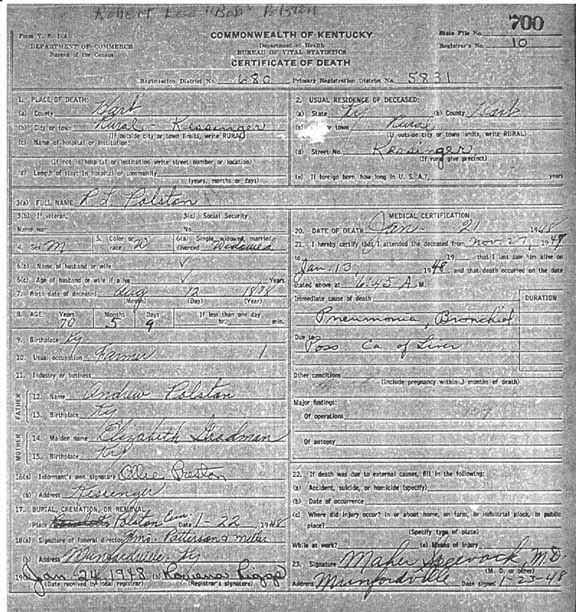 Robert Lee "Bob" Polston
700
Form V. S. 1(A)
DEPARTMENT OF COMMERCE
Bureau of the Census
COMMONWEALTH OF KENTUCKY
Department of Health
BUREAU OF VITAL STATISTICS
CERTIFICATE OF DEATH
State File No.
Registrar's No. 10
Registration District No. 680 Primary Registration District No. 5831
1. PLACE OF DEATH:
(a) County Hart
(b) City or town Rural - Kessinger
(If outside city or town limits, write RURAL)
(c) Name of hospital or institution:
(If not in hospital or institution write street number or location)
(d) Length of stay: In hospital or community
(years, months or days)
2. USUAL RESIDENCE OF DECEASED:
(a) State Ky (b) County Hart
or town Rural
(If outside city or town limits, write RURAL)
(d) Street No. Kessinger
(If rural give precinct)
(e) If foreign born, how long in U. S. A.? years
3(a) FULL NAME R L Polston
3(b) If veteran, 3(c) Social Security
Name war No.
4. Sex M 5. Color or race W 6(a) Single, widowed, married, divorced Widowed
6(b) Name of husband or wife
6(c) Age of husband or wife if alive
7. Birth date of deceased Aug 12 1878
(Month) (Day) (Year)
8. AGE: Years Months Days If less than one day
70 5 9 hr. min.
9. Birthplace Ky
10. Usual occupation Farmer
11. Industry or business
FATHER
12. Name Andrew Polston
13. Birthplace Ky
MOTHER
14. Maiden name Elizabeth Goodman
15. Birthplace Ky
16(a) Informant's own signature Ollie Preston
(b) Address Kessinger
17. BURIAL, CREMATION, OR REMOVAL
Place Polston Cem Date 1-22 1948
18(a) Signature of funeral director
(b) Address Munfordville Ky
19(a) Jan. 24, 1948 (b)
(Date received by local registrar) (Registrar's signature)
MEDICAL CERTIFICATION
20. DATE OF DEATH Jan. 21 1948
21. I hereby certify that I attended the deceased from Nov. 27, 1947
to 19 that I last saw him alive on
Jan. 13, 1948, and that death occurred on the date
stated above at 6:45 A M.
Immediate cause of death
DURATION
Pneumonia, Bronchial
Due to
Poss. Ca of Liver
Other conditions
(Include pregnancy within 3 months of death)
Major findings:
Of operations
Of autopsy
22. If death was due to external causes, fill in the following:
(a) Accident, suicide, or homicide (specify)
(b) Date of occurrence
(c) Where did injury occur? In or about home, on farm, in industrial place, in public
place?
(Specify type of place)
While at work? (e) Means of injury
23. Signature M D
(M. D. or other)
Address Munfordville Date signed 1-23-48